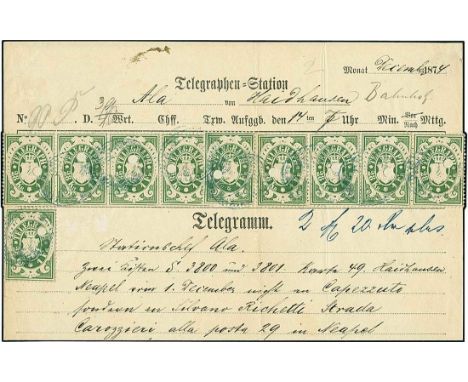 Monat Dezember 1874
Telegraphen-Station
Ala von Haidhausen Bahnhof
No. D. Wrt. Chff. Trw. Aufggb. den 14 im 7 Uhr Min. Vor Nach Mttg.
Telegramm.
Stationschef Ala.
Zwei Kisten S. 3800 und 3801 Karte 49 Haidhausen
Neapel vom 1. Dezember nicht an Capezzuto
sondern an Silvano Richetti Strada
Caroggieri alla posta 29 in Neapel